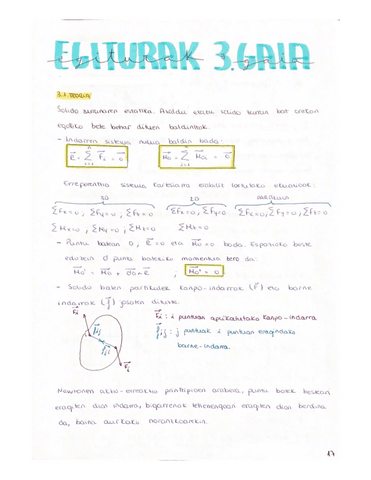 EGITURAK 3.GAIA
egiturak 3.gaia
3.1 TEORIA
Solido zurrunaren estatika. Analdu edozein solido zurrun bat orekan
egoteko bete behar dituen baldintzak.
- Indarren sistema nulua baldin bada:
R = Σ Fi = 0 Mo = Σ Moi = 0
Erreferentzia sistema kartesiarra erabiliz lortutako ekuazioak:
3D 2D
ΣFx=0, ΣFy=0, ΣFz=0 ΣFx=0, ΣFy=0 ΣFx=0, ΣFy=0, ΣFz=0
ΣMx=0, ΣMy=0, ΣMz=0 ΣMz=0
- Puntu batean O, R=0 eta Mo=0 bada. Espazioko beste
edozein O' puntu batekiko momentua bero da:
Mo' = Mo + O'O × R ; Mo' = 0
- Solido baten partikulek kanpo-indarrak (F) eta barne
indarrak (f) jasaten dituzte.
Fi Fi: i puntuan aplikatutako kanpo-indarra
fij fij: j puntuak i puntuan eragindako
barne-indarra.
Fj
Newtonen akzio-erreakzio printzipioaren arabera, puntu batek bestean
eragiten dion indarra, bigarrenak lehenengoan eragiten dion berdina
da, baina aurkako norantzarekin.